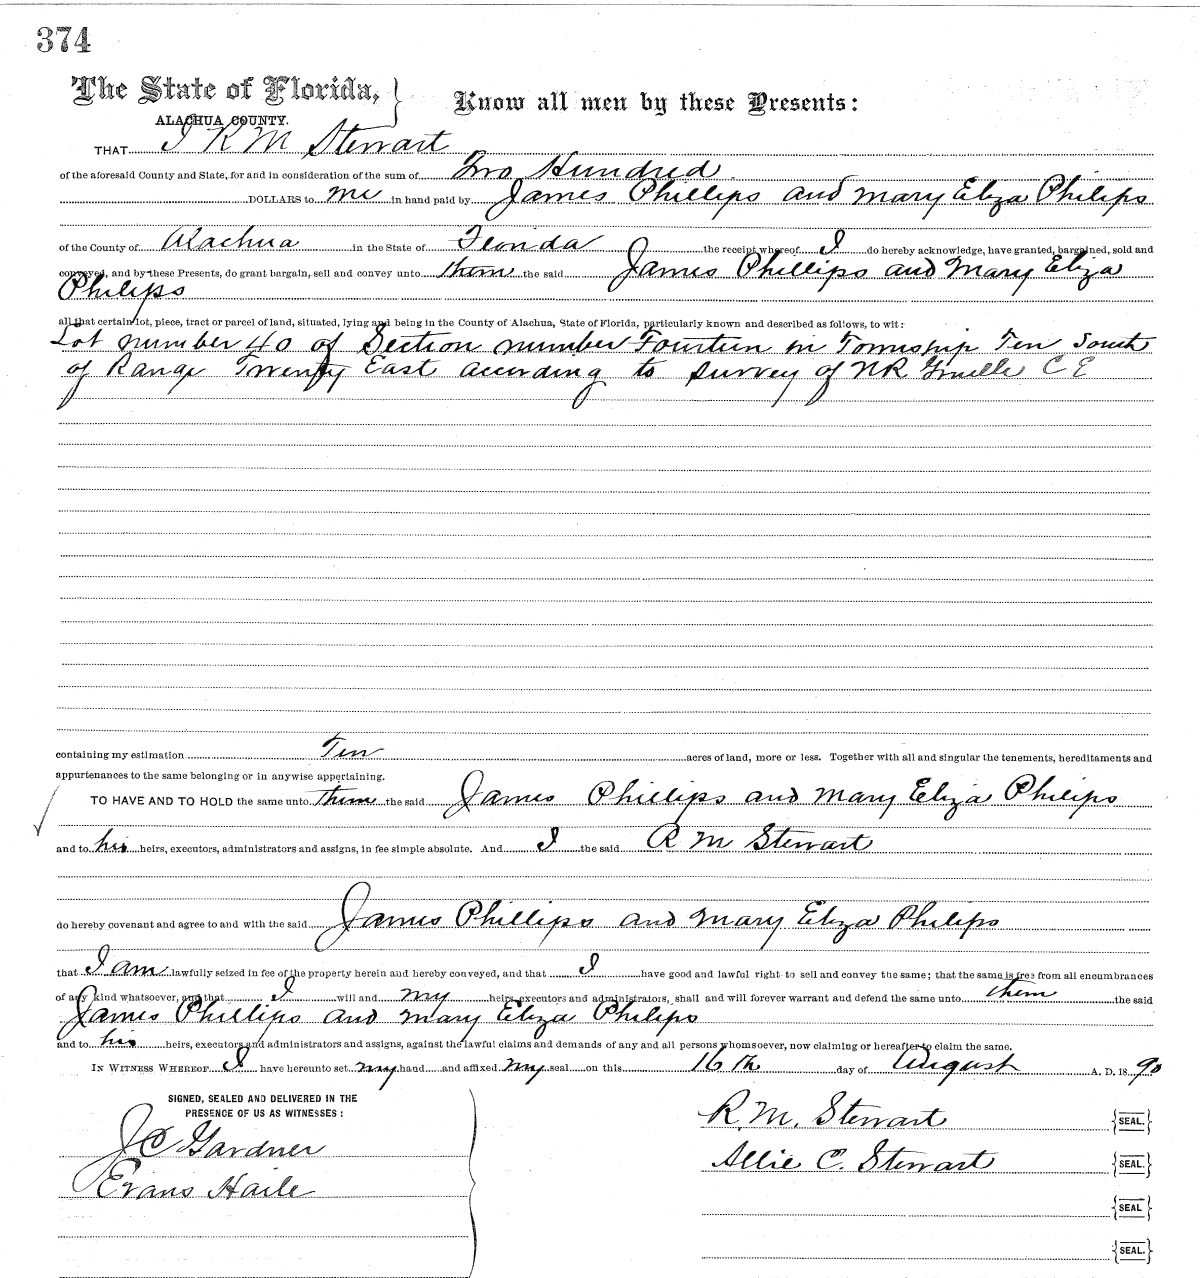 374
The State of Florida,
ALACHUA COUNTY.
Know all men by these Presents:
THAT I R M Stewart
of the aforesaid County and State, for and in consideration of the sum of Two Hundred
DOLLARS to me in hand paid by James Phillips and Mary Eliza Philips
of the County of Alachua in the State of Florida the receipt whereof I do hereby acknowledge, have granted, bargained, sold and
conveyed, and by these Presents, do grant bargain, sell and convey unto them the said James Phillips and Mary Eliza
Philips
all that certain lot, piece, tract or parcel of land, situated, lying and being in the County of Alachua, State of Florida, particularly known and described as follows, to wit:
Lot number 40 of Section number Fourteen in Township Ten South
of Range Twenty East according to survey of NR Gruelle C E
containing my estimation Ten acres of land, more or less. Together with all and singular the tenements, hereditaments and
appurtenances to the same belonging or in anywise appertaining.
TO HAVE AND TO HOLD the same unto them the said James Phillips and Mary Eliza Philips
and to his heirs, executors, administrators and assigns, in fee simple absolute. And I the said R M Stewart
do hereby covenant and agree to and with the said James Phillips and Mary Eliza Philips
that I am lawfully seized in fee of the property herein and hereby conveyed, and that I have good and lawful right to sell and convey the same; that the same is free from all encumbrances
of any kind whatsoever, and that I will and my heirs, executors and administrators, shall and will forever warrant and defend the same unto them the said
James Phillips and Mary Eliza Philips
and to his heirs, executors and administrators and assigns, against the lawful claims and demands of any and all persons whomsoever, now claiming or hereafter to claim the same.
IN WITNESS WHEREOF I have hereunto set my hand and affixed my seal on this 16th day of August A. D. 1890
SIGNED, SEALED AND DELIVERED IN THE
PRESENCE OF US AS WITNESSES:
J C Gardner
Evans Haile
R. M. Stewart SEAL.
Allie C. Stewart SEAL.
SEAL
SEAL.